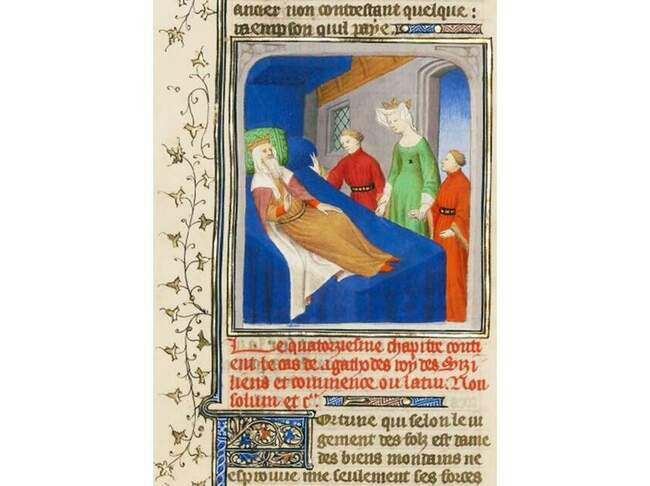 ancier non contrestant quelque :
raempson quil paye
Le quatorziesme chapitre conti
ent le cas de agathodes roy des Sizi
liens et commence ou latin . Non
solum et c͛
Fortune qui selon le iu
gement des folz est dame
des biens mondains ne
esprouue mie seulement ses forces